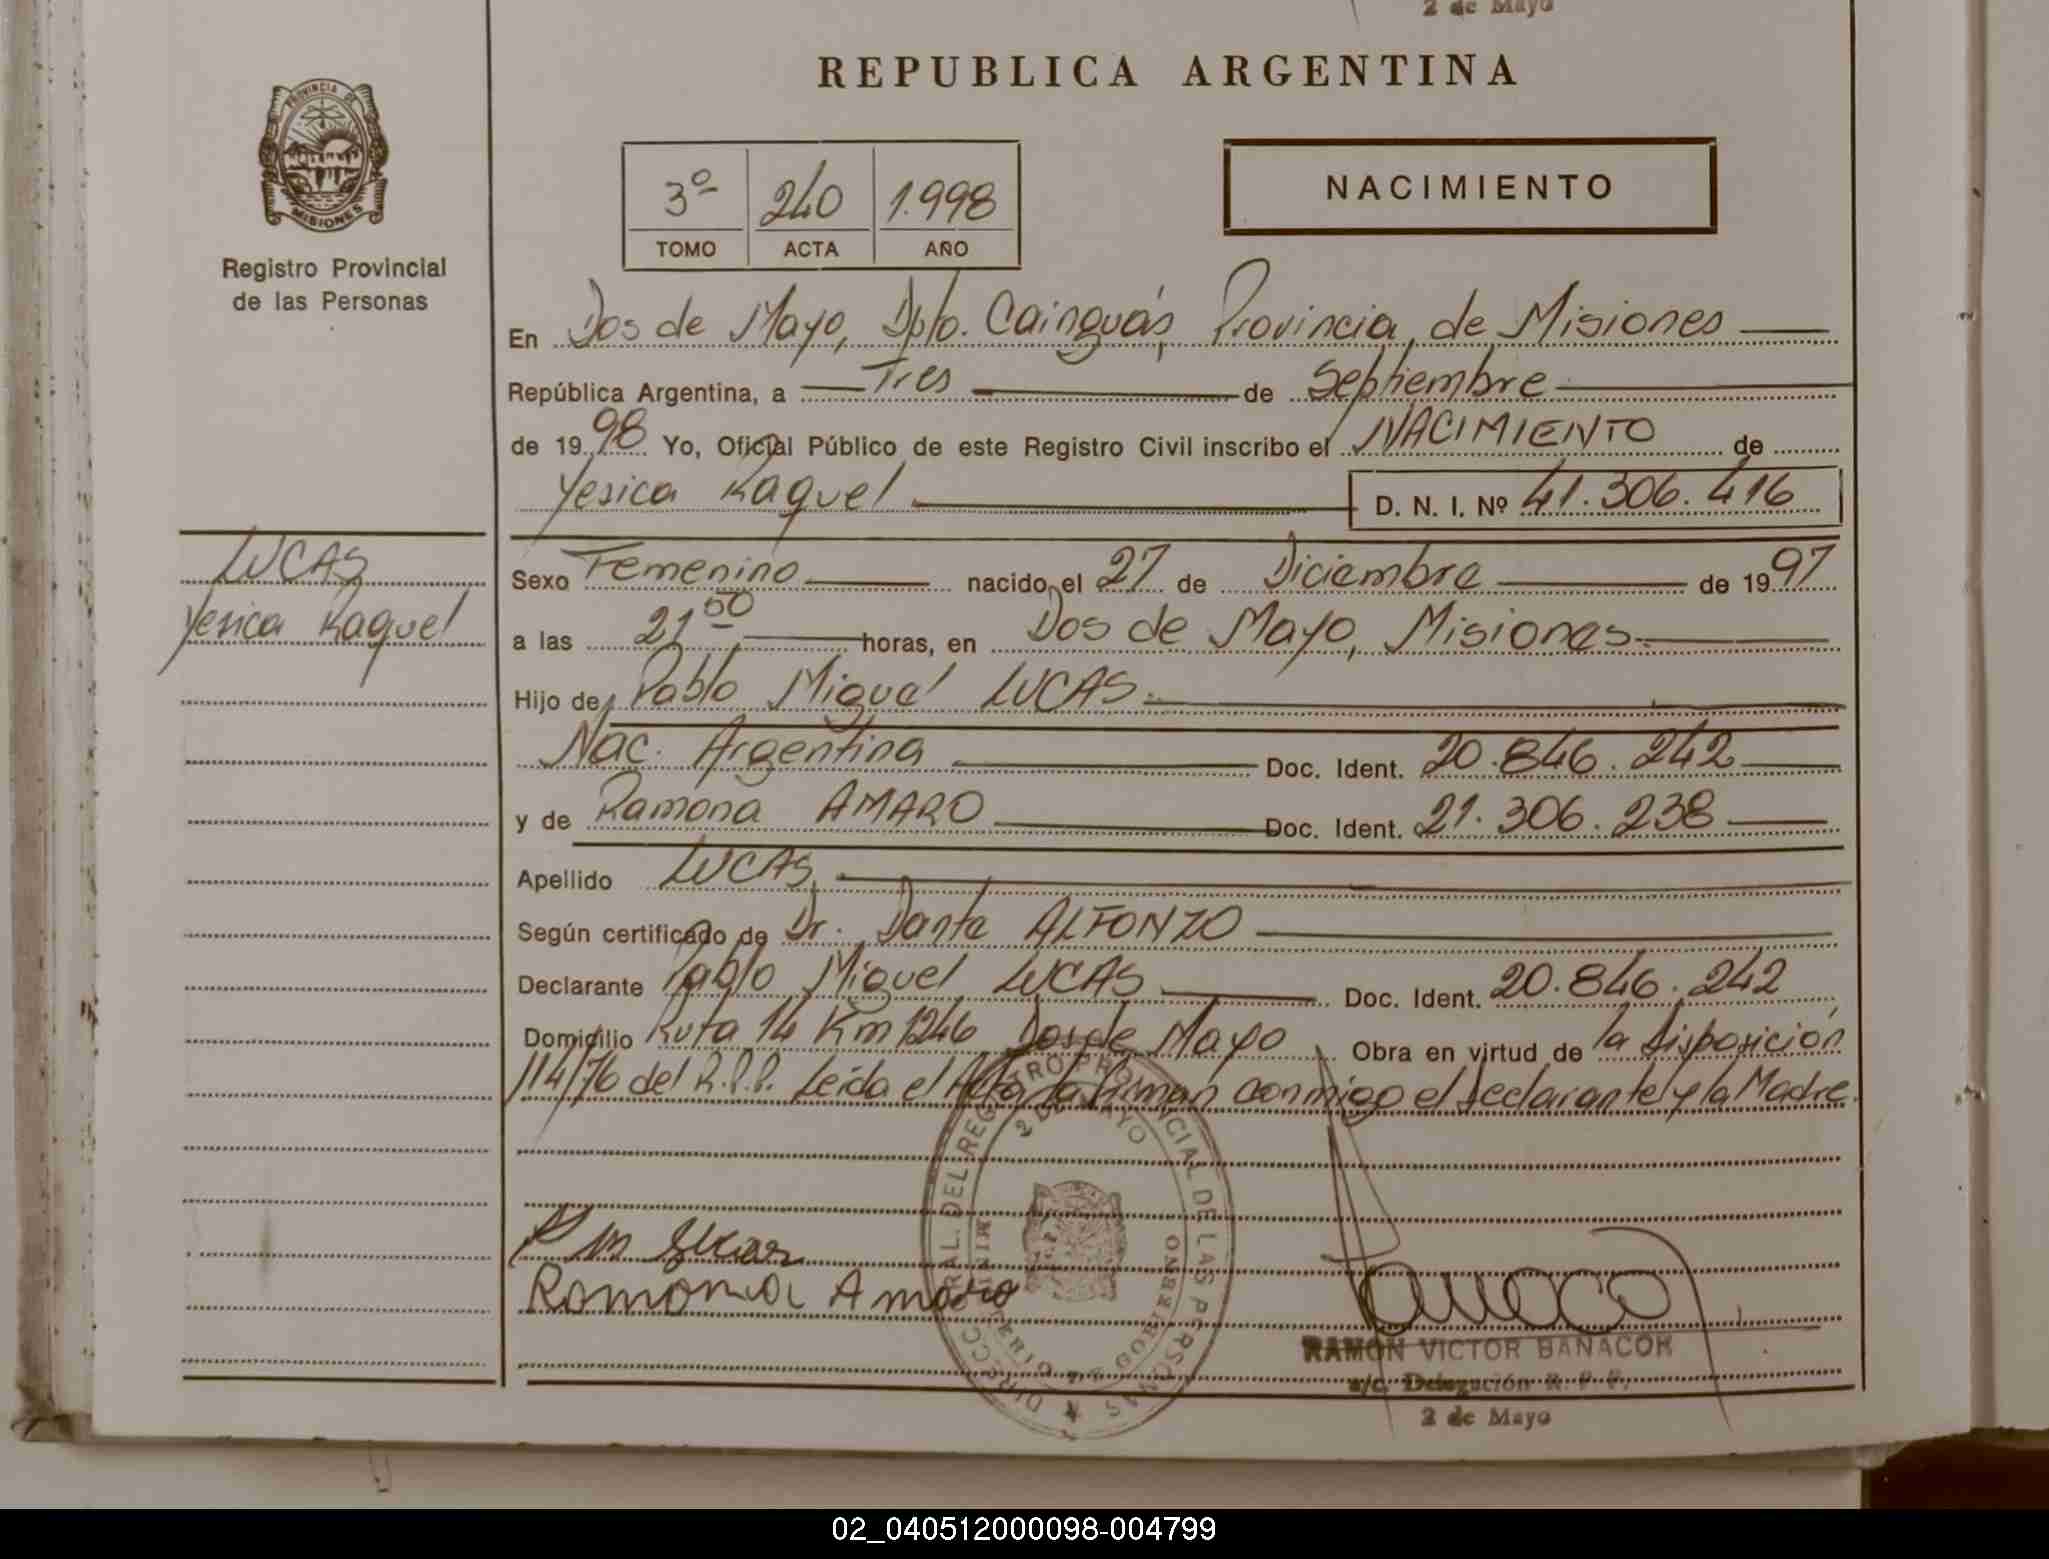 2 de Mayo
REPUBLICA ARGENTINA
PROVINCIA DE
MISIONES
Registro Provincial
de las Personas
3º 240 1.998
TOMO ACTA AÑO
NACIMIENTO
En Dos de Mayo, Dpto. Cainguás, Provincia de Misiones
República Argentina, a Tres de Septiembre
de 1998 Yo, Oficial Público de este Registro Civil inscribo el NACIMIENTO de
Yesica Raquel D. N. I. Nº 41.306.416
LUCAS
Yesica Raquel
Sexo Femenino nacido el 27 de Diciembre de 1997
a las 21 50 horas, en Dos de Mayo, Misiones.
Hijo de Pablo Miguel LUCAS.
Nac. Argentina Doc. Ident. 20.846.242
y de Ramona AMARO Doc. Ident. 21.306.238
Apellido LUCAS
Según certificado de Dr. Dante ALFONZO
Declarante Pablo Miguel LUCAS Doc. Ident. 20.846.242
Domicilio Ruta 14 Km 1246 Dos de Mayo Obra en virtud de la disposición
114/76 del R.P.P. Leída el Acta la firman conmigo el declarante y la Madre.
DEL REGISTRO PROVINCIAL DE LAS PERSONAS
2 DE MAYO
GOBIERNO
Ramona Amaro
RAMON VICTOR BANACOR
a/c. Delegación R. P. P.
2 de Mayo
02_040512000098-004799